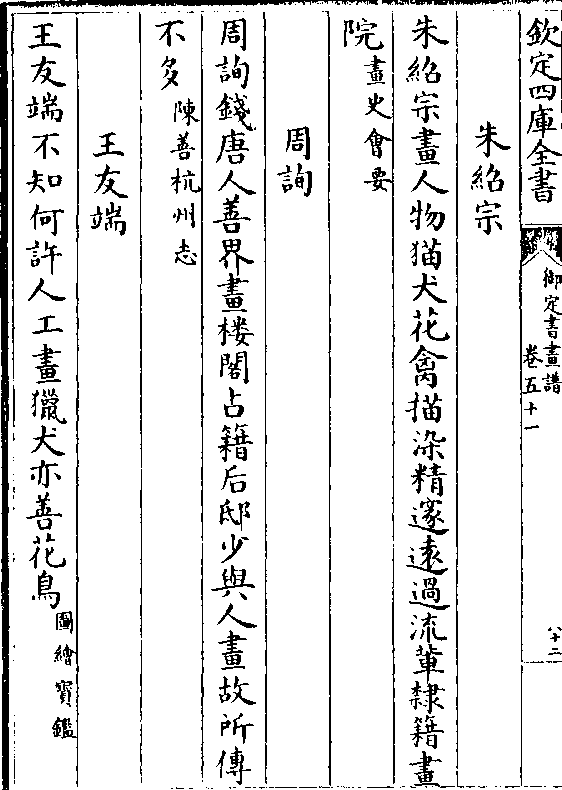 欽定四庫全書
御定書畫譜
卷五十一
八十二
朱紹宗
朱紹宗畫人物猫犬花禽描染精邃遠過流輩隸籍畫
院畫史會要
周詢
周詢錢唐人善界畫楼閣占籍后邸少與人畫故所傳
不多陳善杭州志
王友端
王友端不知何許人工畫獵犬亦善花鳥圖繪寶鑑